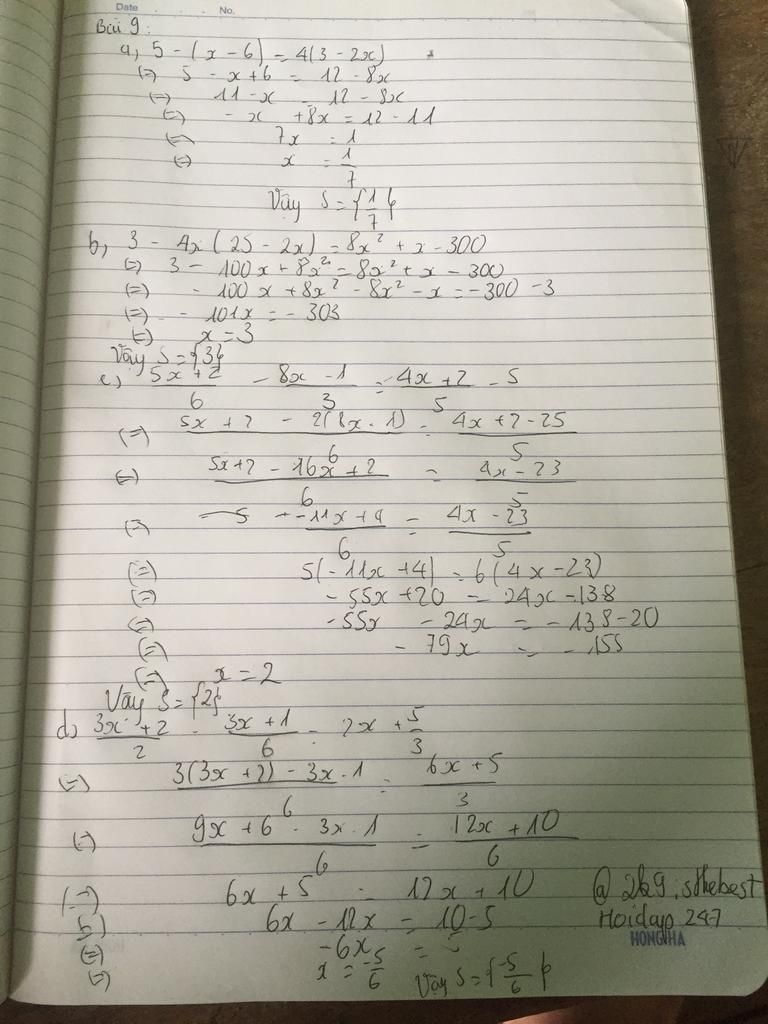 Date No.
Bài 9:
a, 5 - (x - 6) = 4(3 - 2x)
(=) 5 - x + 6 = 12 - 8x
(=) 11 - x = 12 - 8x
(=) - x + 8x = 12 - 11
(=) 7x = 1
(=) x = 1/7
Vậy S = {1/7}
b, 3 - 4x(25 - 2x) = 8x² + x - 300
(=) 3 - 100x + 8x² = 8x² + x - 300
(=) - 100x + 8x² - 8x² - x = -300 - 3
(=) - 101x = - 303
(=) x = 3
Vậy S = {3}
c, (5x + 2)/6 - (8x - 1)/3 = (4x + 2)/5 - 5
(=) (5x + 2 - 2(8x - 1))/6 = (4x + 2 - 25)/5
(=) (5x + 2 - 16x + 2)/6 = (4x - 23)/5
(=) (-11x + 4)/6 = (4x - 23)/5
(=) 5(-11x + 4) = 6(4x - 23)
(=) -55x + 20 = 24x - 138
(=) -55x - 24x = - 138 - 20
(=) - 79x = - 158
(=) x = 2
Vậy S = {2}
d, (3x + 2)/2 - (3x + 1)/6 = 2x + 5/3
(=) (3(3x + 2) - 3x - 1)/6 = (6x + 5)/3
(=) (9x + 6 - 3x - 1)/6 = (12x + 10)/6
(=) 6x + 5 = 12x + 10
(=) 6x - 12x = 10 - 5
(=) -6x = 5
(=) x = -5/6 Vậy S = {-5/6}
@ 2k9.isthebest
Hoidap 247
HONG HA